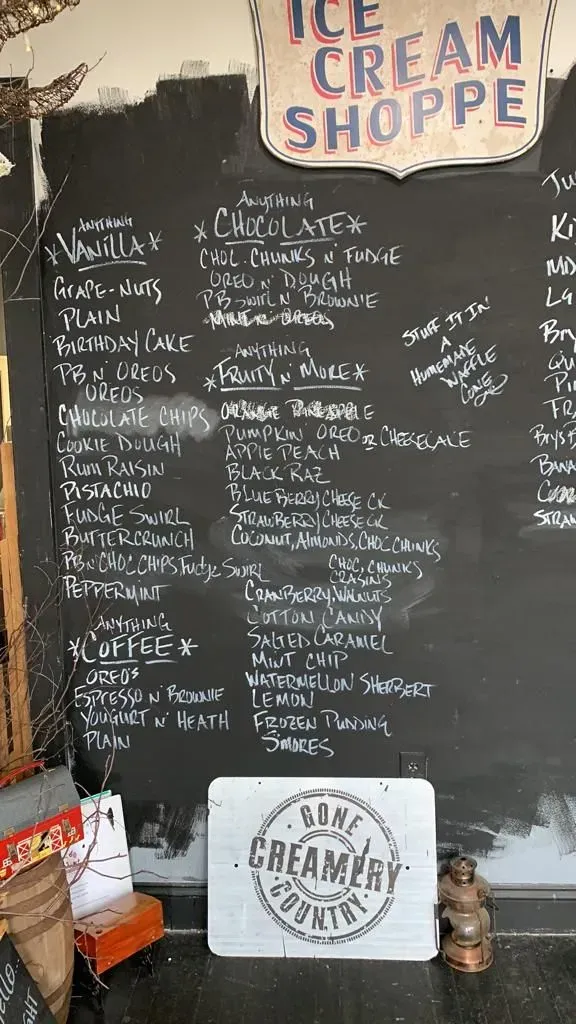 ICE
CREAM
SHOPPE
ANYTHING
*VANILLA*
GRAPE-NUTS
PLAIN
BIRTHDAY CAKE
PB N' OREOS
OREOS
CHOCOLATE CHIPS
COOKIE DOUGH
RUM RAISIN
PISTACHIO
FUDGE SWIRL
BUTTERCRUNCH
PB N' CHOC CHIPS, FUDGE SWIRL
PEPPERMINT
ANYTHING
*COFFEE*
OREO'S
ESPRESSO N' BROWNIE
YOUGURT N' HEATH
PLAIN
ANYTHING
*CHOCOLATE*
CHOC. CHUNKS N' FUDGE
OREO N' DOUGH
PB SWIRL N' BROWNIE
ANYTHING
*FRUITY N' MORE*
PUMPKIN OREO OR CHEESECAKE
APPLE PEACH
BLACK RAZ
BLUEBERRY CHEESE CK
STRAWBERRY CHEESE CK
COCONUT, ALMONDS, CHOC CHUNKS
CHOC, CHUNKS
CRASINS
CRANBERRY, WALNUTS
COTTON CANDY
SALTED CARAMEL
MINT CHIP
WATERMELLON SHERBERT
LEMON
FROZEN PUDDING
S'MORES
STUFF IT IN
A
HOMEMADE
WAFFLE
CONE
GONE
CREAMERY
COUNTRY